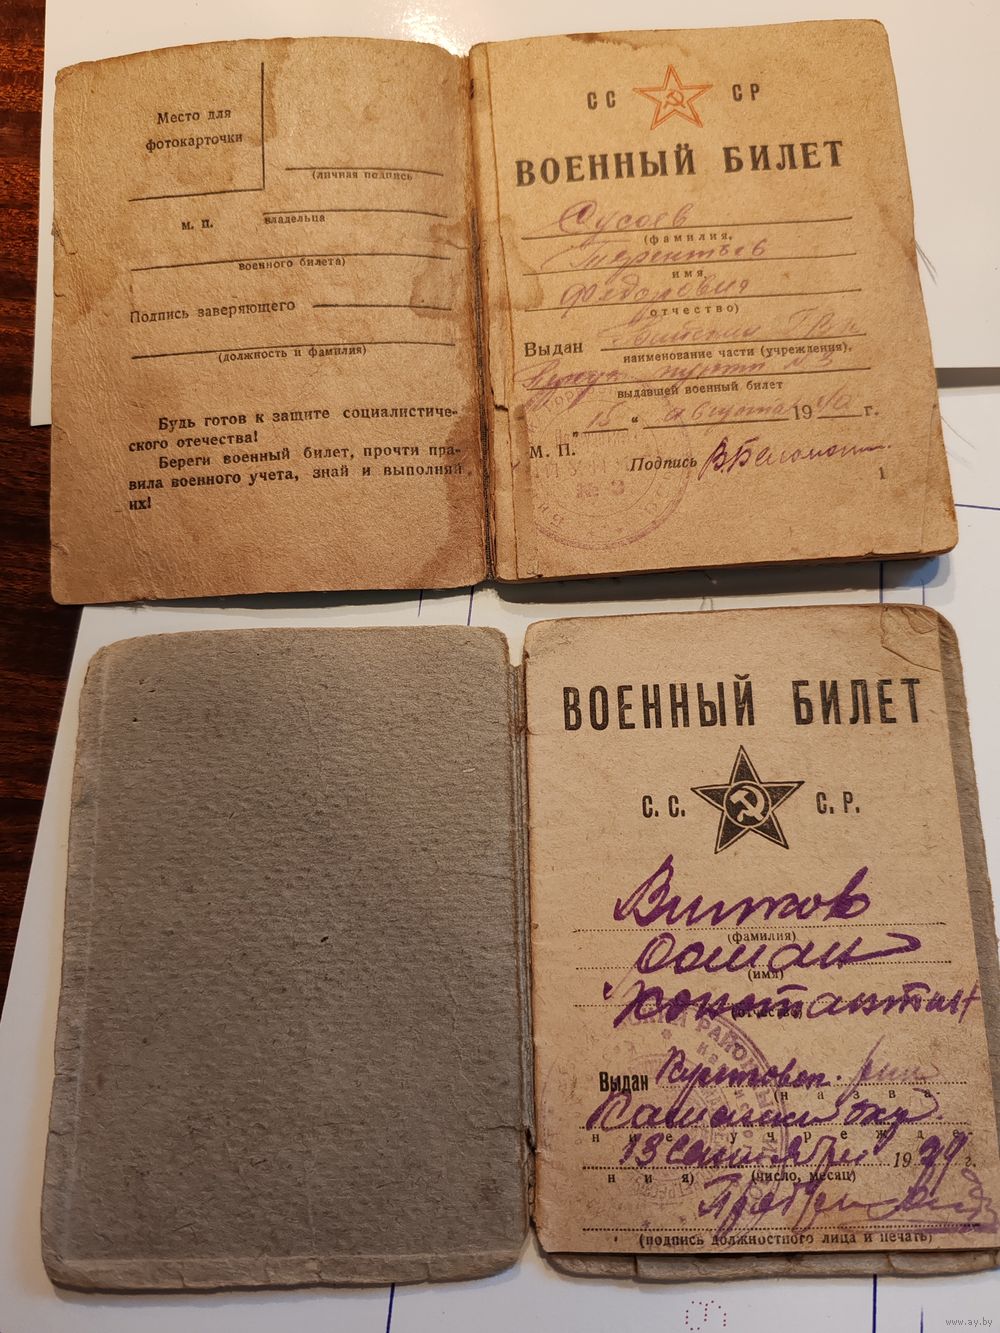 Место для
фотокарточки
(личная подпись
М. П.
владельца
военного билета)
Подпись заверяющего
(должность и фамилия)
Будь готов к защите социалистиче-
ского отечества!
Береги военный билет, прочти пра-
вила военного учета, знай и выполняй
их!
СС СР
ВОЕННЫЙ БИЛЕТ
Сусоев
(фамилия,
Терентьев
имя,
Федорович
отчество)
Выдан
наименование части (учреждения),
выдавшей военный билет
„15“ августа 1940 г.
М. П.
Подпись
1
ВОЕННЫЙ БИЛЕТ
С. С. С. Р.
Витков
(фамилия)
(имя)
Константин
Выдан
(назва-
ние учрежде-
13 сентября 1939 г.
ния) (число, месяц)
(подпись должностного лица и печать)
www.ay.by